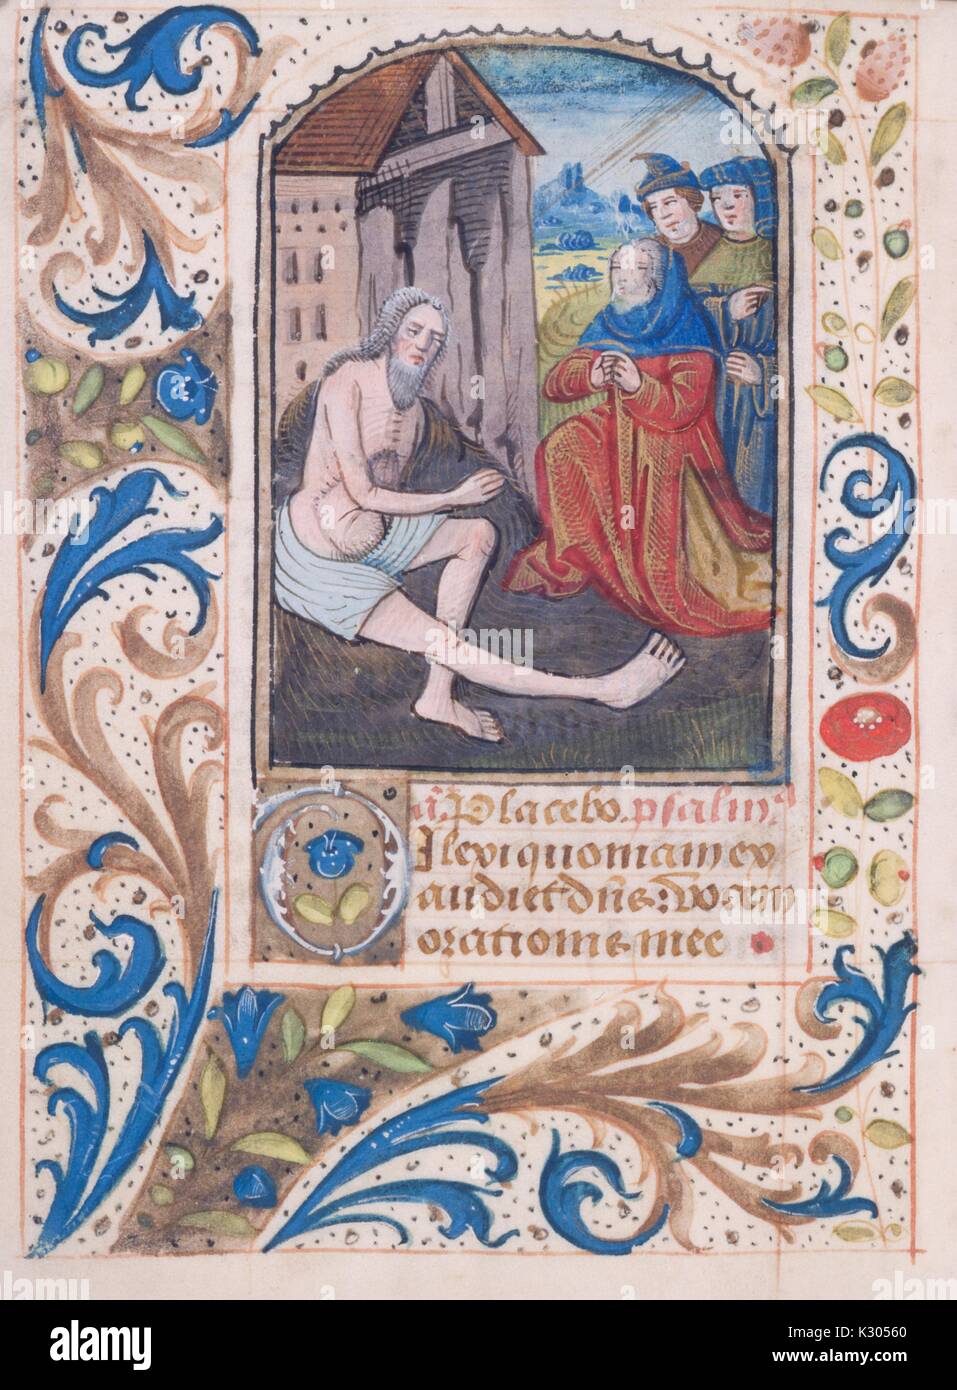 añ. Placebo. psalmꝰ
Dilexi quoniam ex
audiet dñs: vocem
orationis mee
alamy
Image ID: K30560
www.alamy.com